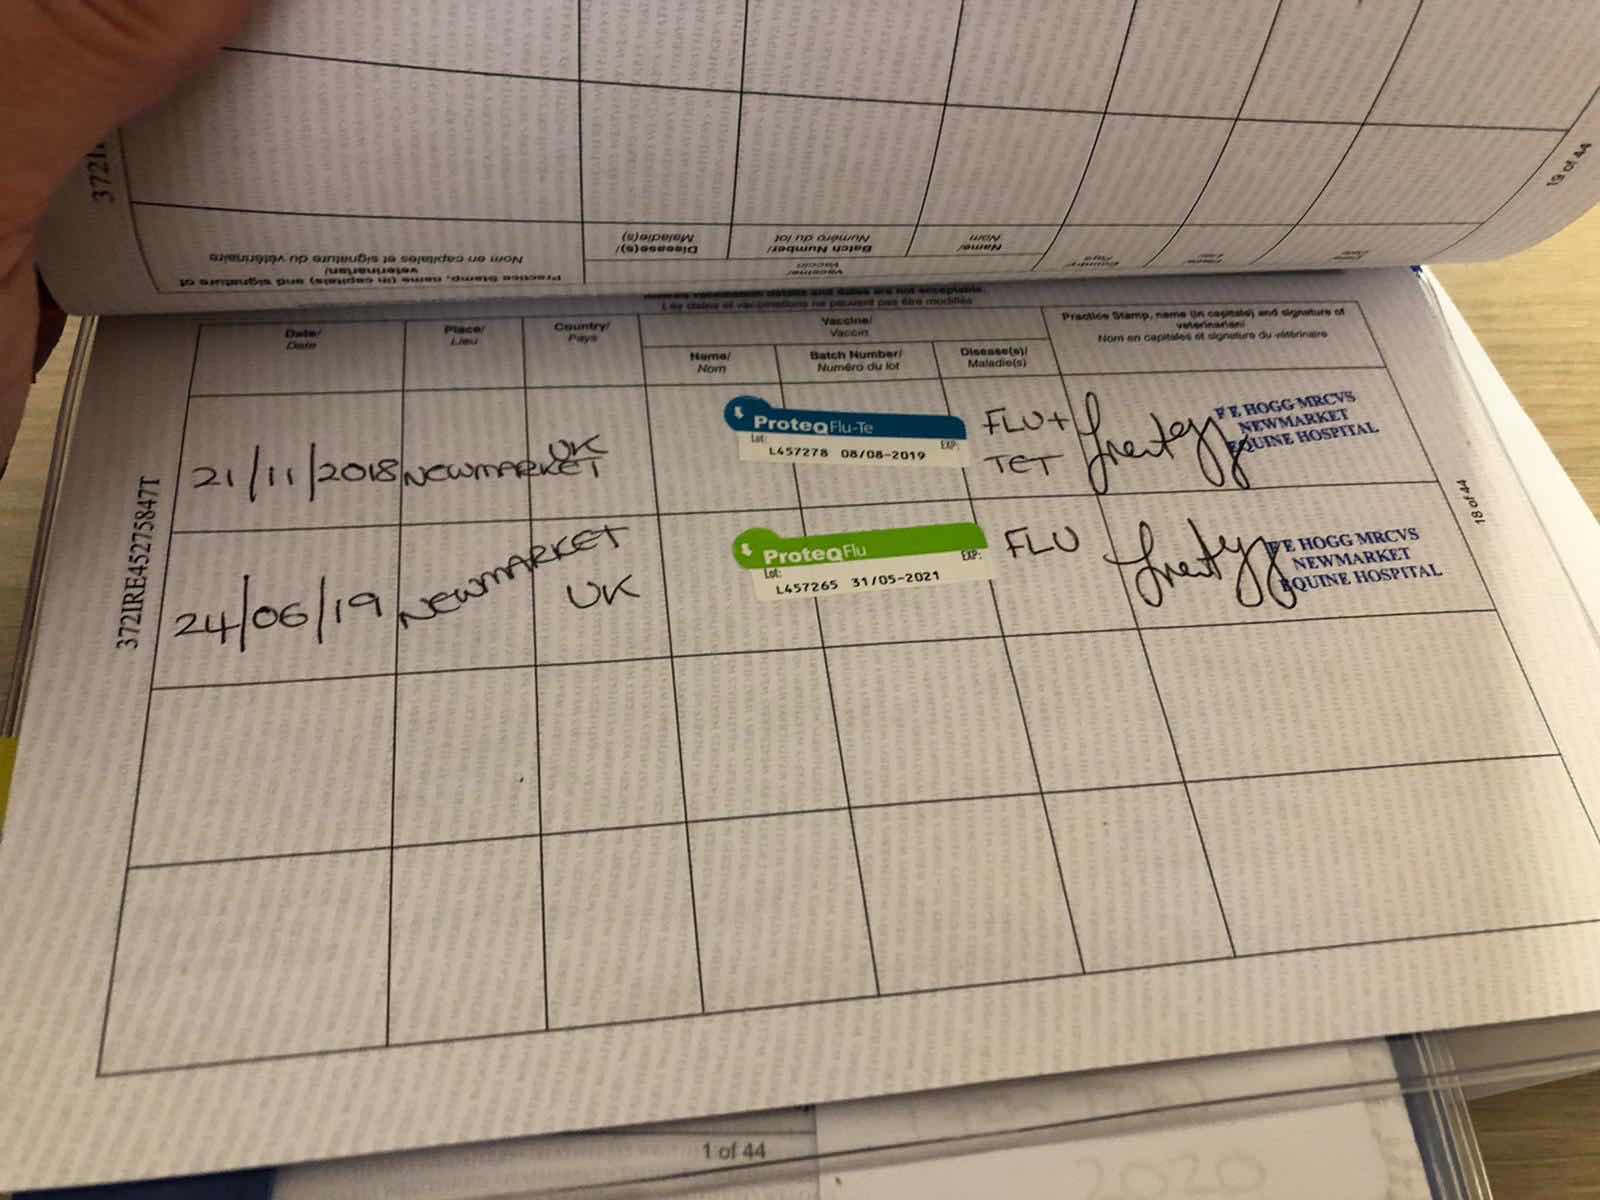 3721
19 of 44
Practice Stamp, name (in capitals) and signature of
veterinarian/
Nom en capitales et signature du vétérinaire
Vaccine/
Vaccin
Disease(s)/
Maladie(s)
Batch Number/
Numéro du lot
Name/
Nom
Country/
Pays
details and dates are not acceptable.
Les dates et vaccinations ne peuvent pas être modifiés
Date/
Date
Place/
Lieu
Country/
Pays
Vaccine/
Vaccin
Name/
Nom
Batch Number/
Numéro du lot
Disease(s)/
Maladie(s)
Practice Stamp, name (in capitals) and signature of
veterinarian/
Nom en capitales et signature du vétérinaire
21/11/2018 NEWMARKET
UK
ProteqFlu-Te
Lot: EXP:
L457278 08/08-2019
FLU+
TET
F E HOGG MRCVS
NEWMARKET
EQUINE HOSPITAL
24/06/19 NEWMARKET
UK
ProteqFlu
Lot: EXP:
L457265 31/05-2021
FLU
F E HOGG MRCVS
NEWMARKET
EQUINE HOSPITAL
372IRE45275847T
18 of 44
1 of 44
2020